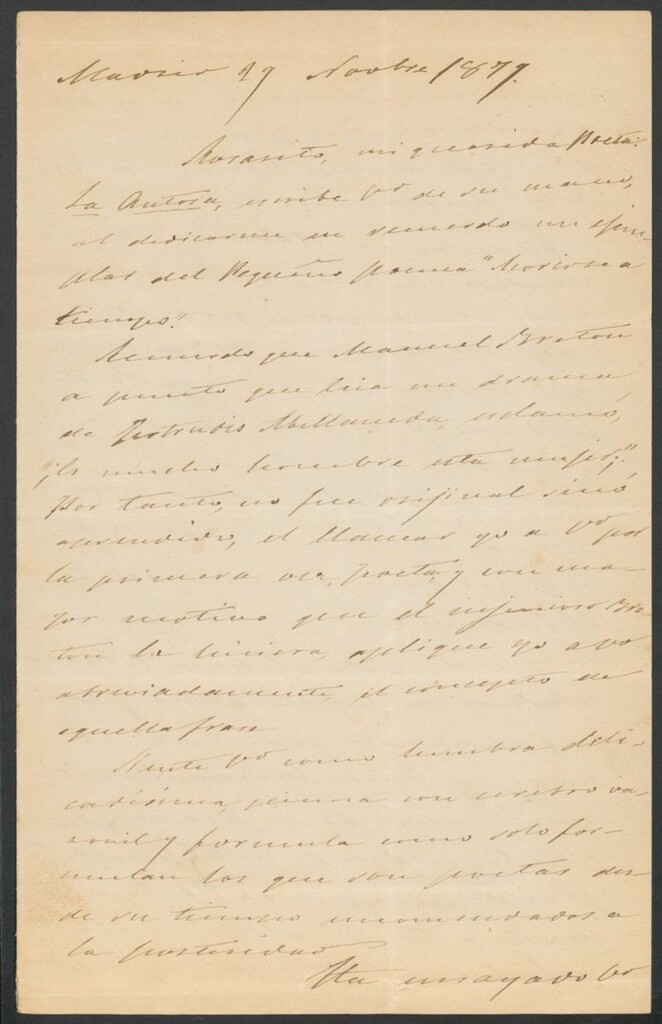 Madrid 29 Novbre 1879.
Rosarito, mi querida Poeta:
La Autora, escribe Vd de su mano,
al dedicarme en recuerdo un ejem-
plar del Pequeño poema "Morirse a
tiempo".
Recuerdo que Manuel Breton
a punto que leia un drama
de Gertrudis Abellaneda, esclamó,
"¡Es mucho hombre esta mujer;"
Por tanto, no fue original sinó
aprendido, el llamar yo a Vd por
la primera vez, poeta, y con ma-
yor motivo que el injenioso Bre-
ton lo hiciera, aplique yo a Vd
abreviadamente, el concepto de
aquella frase
Siente Vd como hembra deli-
cadísima, piensa con cerebro va-
ronil y formula como solo for-
mulan los que son poetas des-
de su tiempo recomendados a
la posteridad
Ha ensayado Vd